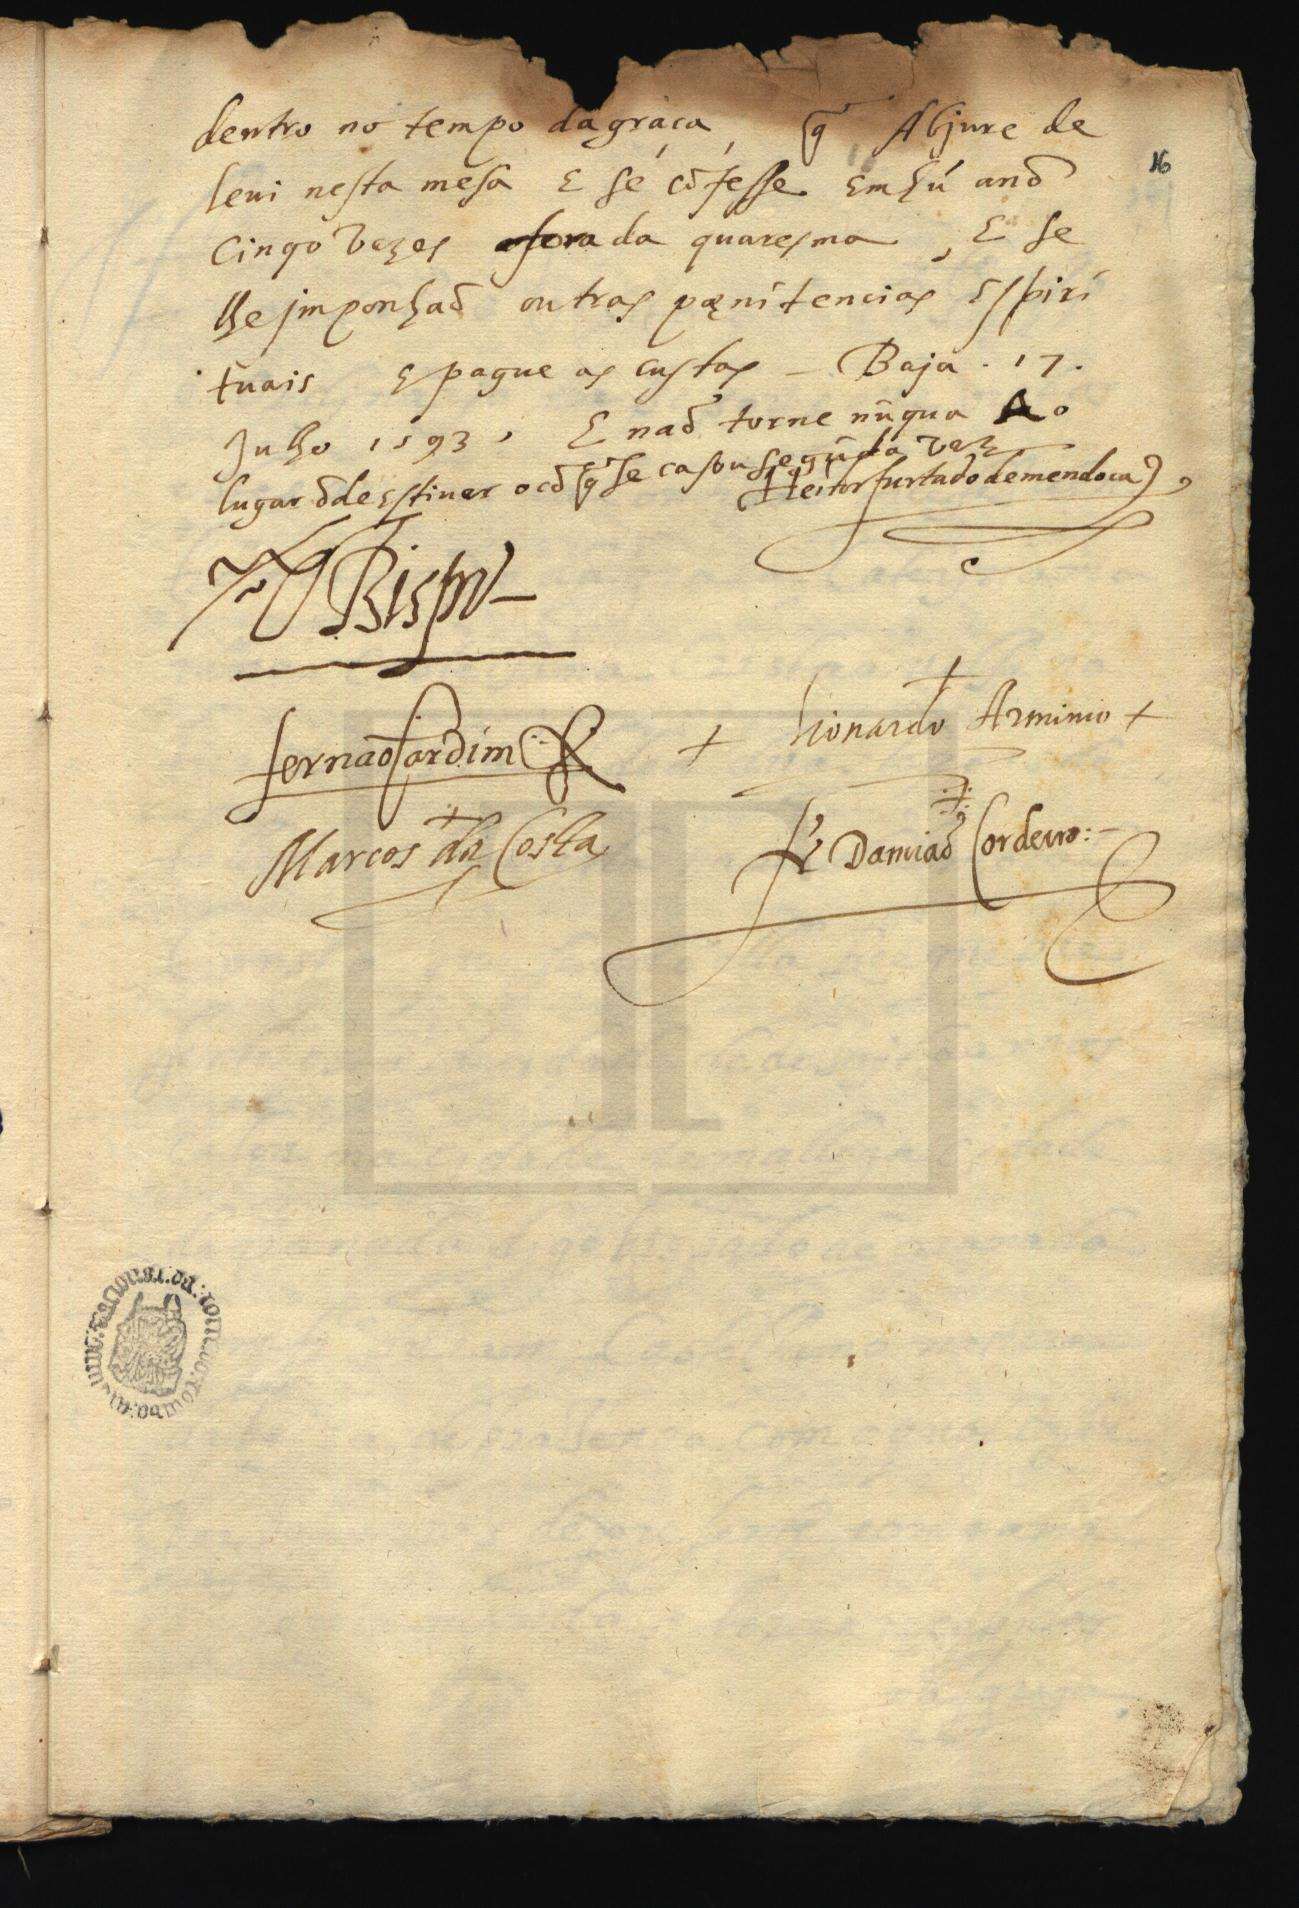 dentro no tempo da graça, q̃ Abjure de
16
leui nesta mesa E se cõfesse em hũ anõ
Cinqo vezes afora da quaresma, E se
lhe jmponhaõ outras pœnitencias Espiri
tuais E pague as custas – Baja. 17.
Julho 1593, E naõ torne nũqua Ao
lugar õde estiuer o cõ q̃ se casou segũda vez
Heitor furtado de mendoca
Bispo
fernaõ Cardim
+ Lionardo Arminio +
Marcos da Costa
fr Damiaõ Cordeiro:-